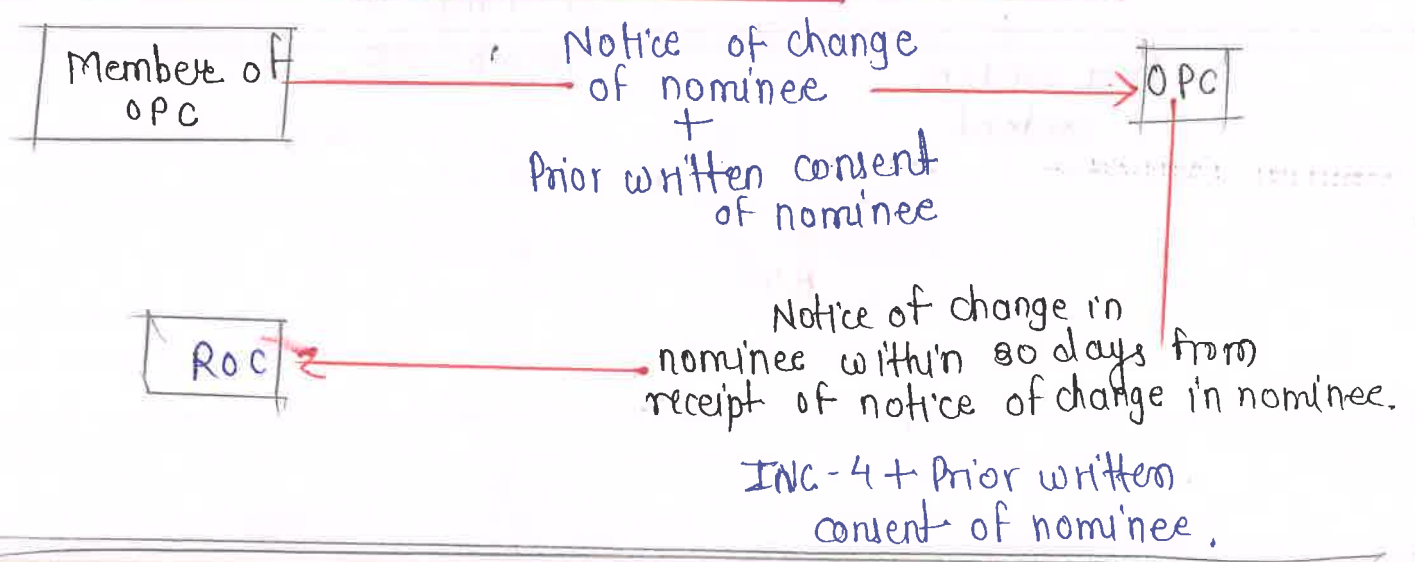 Member of
OPC
Notice of change
of nominee
+
Prior written consent
of nominee
OPC
Notice of change in
nominee within 80 days from
receipt of notice of change in nominee.
ROC
INC-4 + Prior written
consent of nominee.